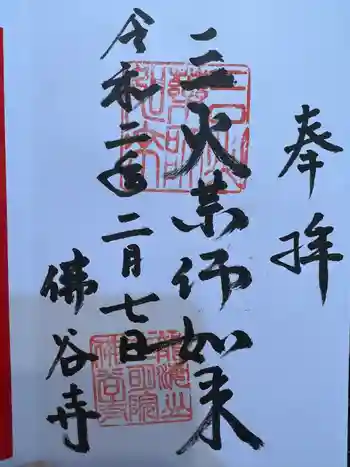 奉拝
三火薬师如来
令和二年二月七日
佛谷寺